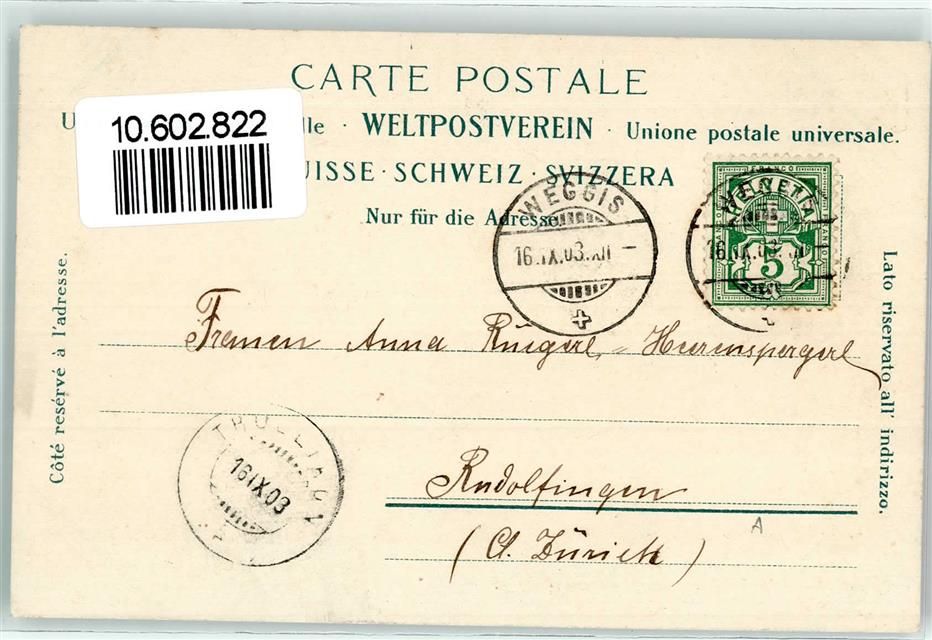 CARTE POSTALE
10.602.822
U lle · WELTPOSTVEREIN · Unione postale universale.
UISSE · SCHWEIZ · SVIZZERA
Nur für die Adresse
WEGGIS
16.IX.03.XII
FRANCO
HELVETIA
5
16.IX.03
Côté resérvé à l'adresse.
Lato riservato all' indirizzo.
Anna
TRÜLLIKON
16 IX 03
Rudolfingen
A
(Ct. Zürich)